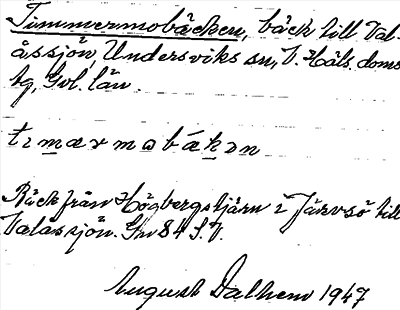 Timmermobäcken, bäck till Val-
åssjön, Undersviks sn, V. Häls. doms
hg, Gvl. län
tımærmobákən
Bäck från Högbergstjärn i Järvsö till
Valåssjön. Gv 84 S.V.
August Dalhem 1947